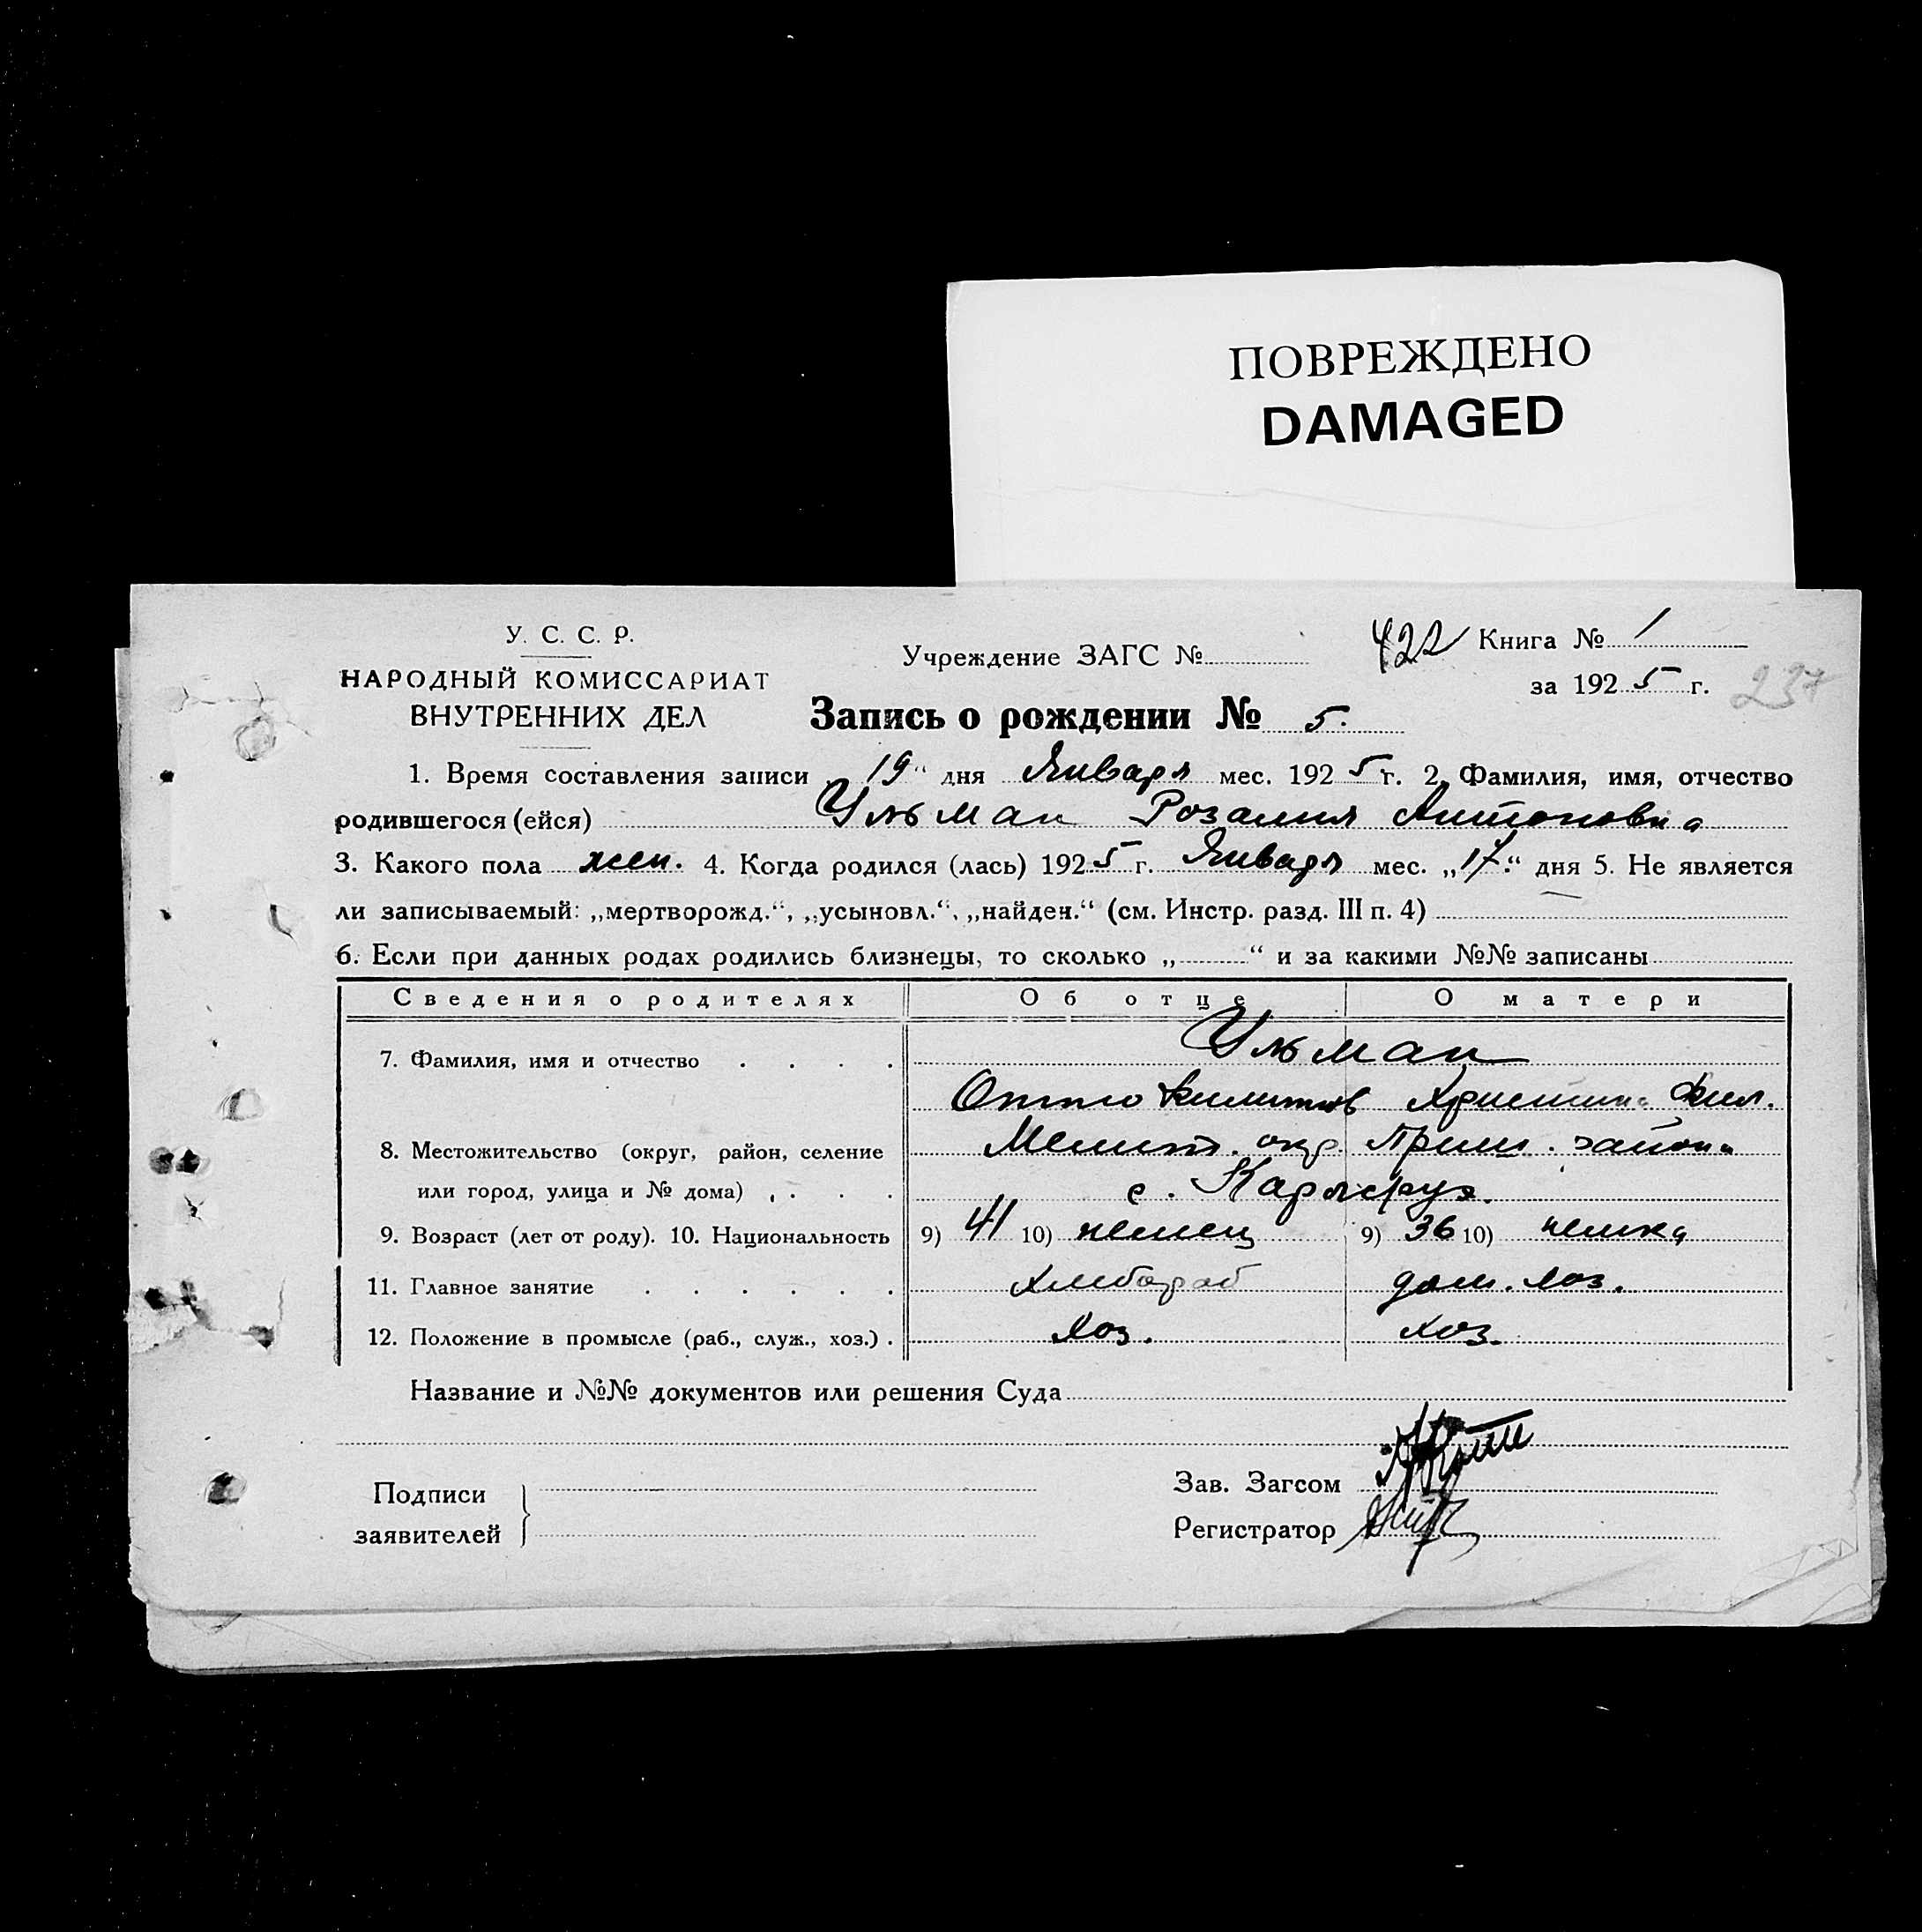 ПОВРЕЖДЕНО
DAMAGED
У. С. С. Р.
НАРОДНЫЙ КОМИССАРИАТ
ВНУТРЕННИХ ДЕЛ
Учреждение ЗАГС №
422 Книга № 1
за 1925 г. 237
Запись о рождении № 5.
1. Время составления записи 19 " дня Января мес. 1925 г. 2. Фамилия, имя, отчество
родившегося (ейся) Ульман Розалия Антоновна
3. Какого пола жен. 4. Когда родился (лась) 1925 г. Января мес. „17." дня 5. Не является
ли записываемый: „мертворожд.", „усыновл.", „найден." (см. Инстр. разд. III п. 4)
6. Если при данных родах родились близнецы, то сколько „ " и за какими №№ записаны
Сведения о родителях Об отце О матери
7. Фамилия, имя и отчество Ульман
Отто Христина Фил.
8. Местожительство (округ, район, селение Мелит. окр. Приш. района
или город, улица и № дома) с. Карлсруэ.
9. Возраст (лет от роду). 10. Национальность 9) 41 10) немец 9) 36 10) немка
11. Главное занятие Хлебороб дом. хоз.
12. Положение в промысле (раб., служ., хоз.) . хоз. хоз.
Название и №№ документов или решения Суда
Подписи
заявителей
Зав. Загсом
Регистратор